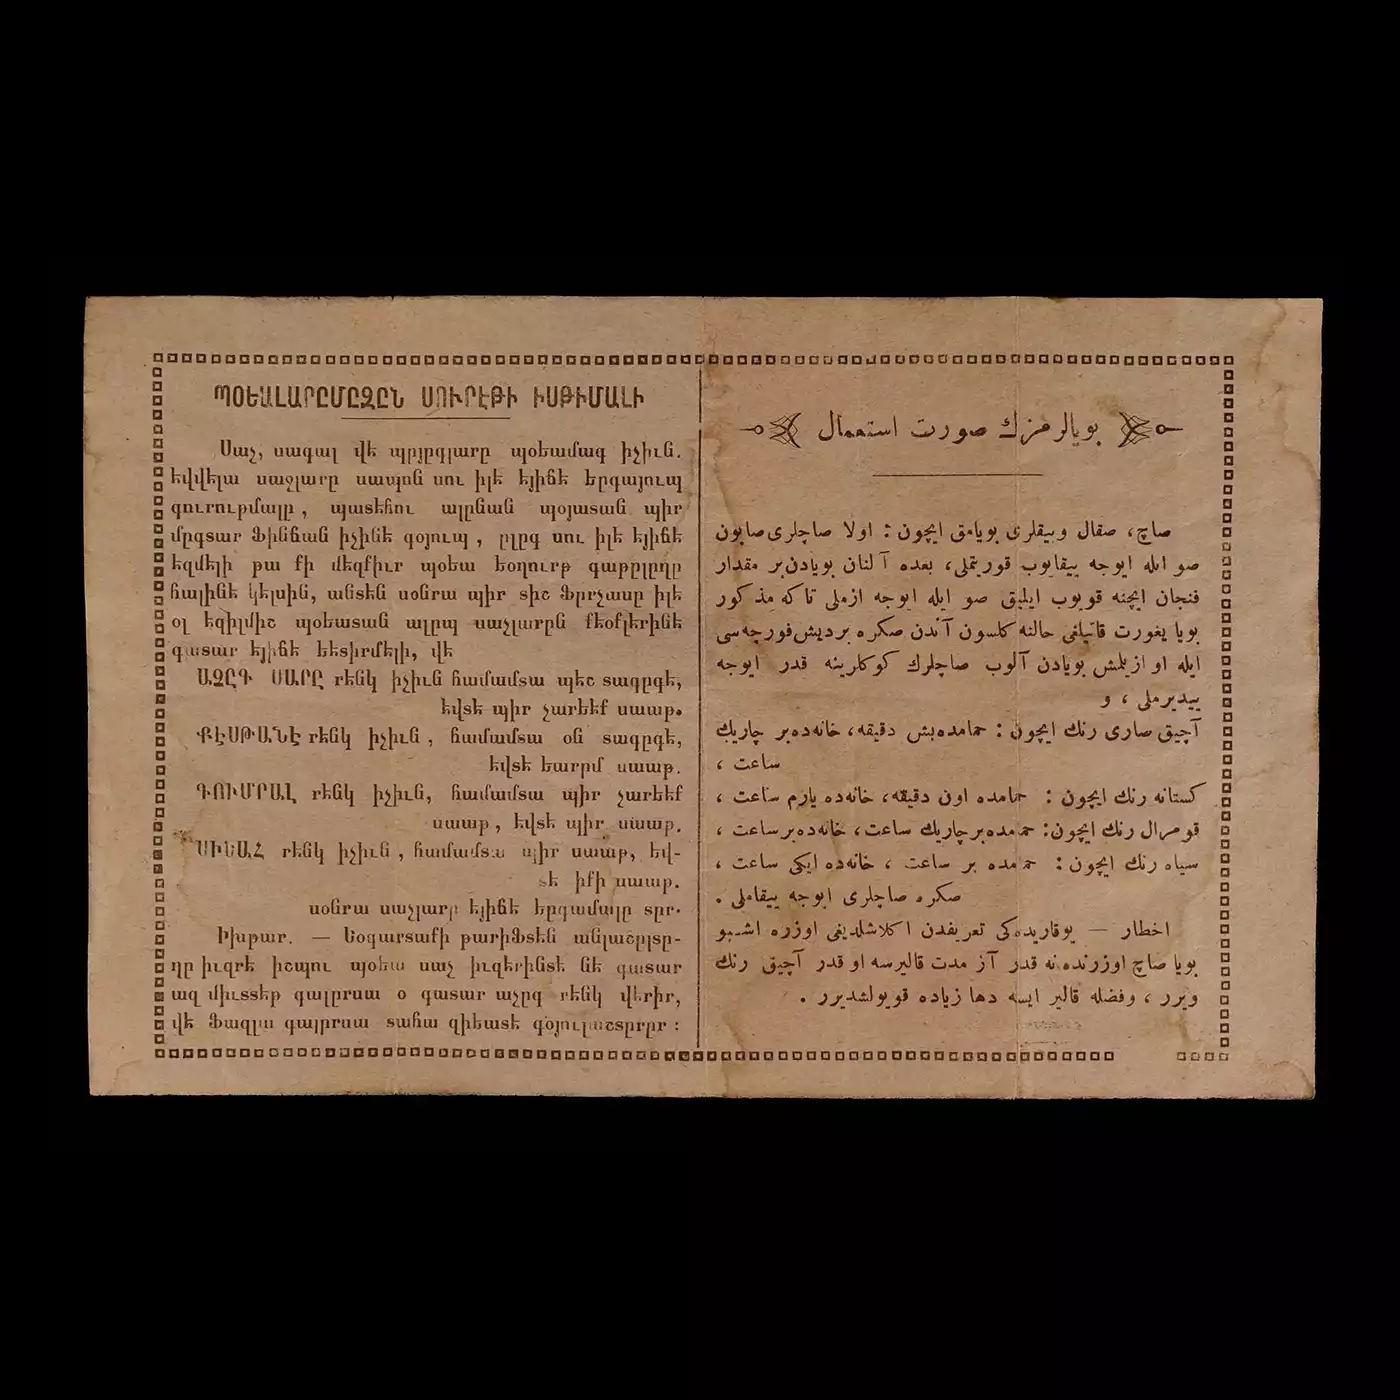 ՊՕԵԱԼԱՐԸՄԸԶԸՆ ՍՈՒՐԷԹԻ ԻՍԹԻՄԱԼԻ
Սաչ, սագալ վե պըյըգլարը պօեամագ իչիւն.
եվվելա սաչլարը սապօն սու իլե եյինե երգայուպ
գուրութմալը, պատեհու ալընան պօյատան պիր
մըգտար Ֆինճան իչինե գօյուպ, ըլըգ սու իլե եյինե
եզմելի թա քի մեզքիւր պօեա եօղուրթ գաթըլըղը
հալինե կելսին, անտեն սօնրա պիր տիշ Ֆըրչասը իլե
օլ եզիլմիշ պօեատան ալըպ սաչլարըն քեօքլերինե
գատար եյինե եետիրմելի, վե
ԱՉԸԳ ՍԱՐԸ րենկ իչիւն համամտա պեշ տագըգե,
եվտե պիր չարեեք սաաթ.
ՔԷՍԹԱՆԷ րենկ իչիւն, համամտա օն տագըգե,
եվտե եարըմ սաաթ.
ԳՈՒՄՐԱԼ րենկ իչիւն, համամտա պիր չարեեք
սաաթ, եվտե պիր սաաթ.
ՍԻԵԱՀ րենկ իչիւն, համամտա պիր սաաթ, եվ-
տե իքի սաաթ.
սօնրա սաչլարը եյինե երգամալը տըր.
Իխթար. — Եօգարտաքի թարիֆտեն անլաշըլտը-
ղը իւզրե իշպու պօեա սաչ իւզերինտե նե գատար
ազ միւտտեթ գալըրսա օ գատար աչըգ րենկ վերիր,
վե Ֆազլա գալըրսա տահա զիեատե գօյուլաշտըրըր :
بويالرمزك صورت استعمال
صاچ، صقال وبيقلرى بويامق ايچون : اولا صاچلرى صابون
صو ايله ايوجه ييقايوب قوريتملى، بعده آلنان بويادن بر مقدار
فنجان ايچنه قويوب ايليق صو ايله ايوجه ازملى تاكه مذكور
بويا يغورت قاتيلغى حالنه كلسون آندن صكره برديش فورچه سى
ايله او ازيلمش بويادن آلوب صاچلرك كوكلرينه قدر ايوجه
ييديرملى ، و
آچيق صارى رنك ايچون : حمامده بش دقيقه، خانه ده بر چاريك
ساعت ،
كستانه رنك ايچون : حمامده اون دقيقه، خانه ده يارم ساعت ،
قومرال رنك ايچون: حمامده بر چاريك ساعت، خانه ده بر ساعت ،
سياه رنك ايچون : حمامده بر ساعت ، خانه ده ايكى ساعت ،
صكره صاچلرى ايوجه ييقاملى .
اخطار — يوقاريده كى تعريفدن اكلاشلديغى اوزره اشبو
بويا صاچ اوزرنده نه قدر آز مدت قاليرسه او قدر آچيق رنك
ويرر ، وفضله قالير ايسه دها زياده قويولشديرر .